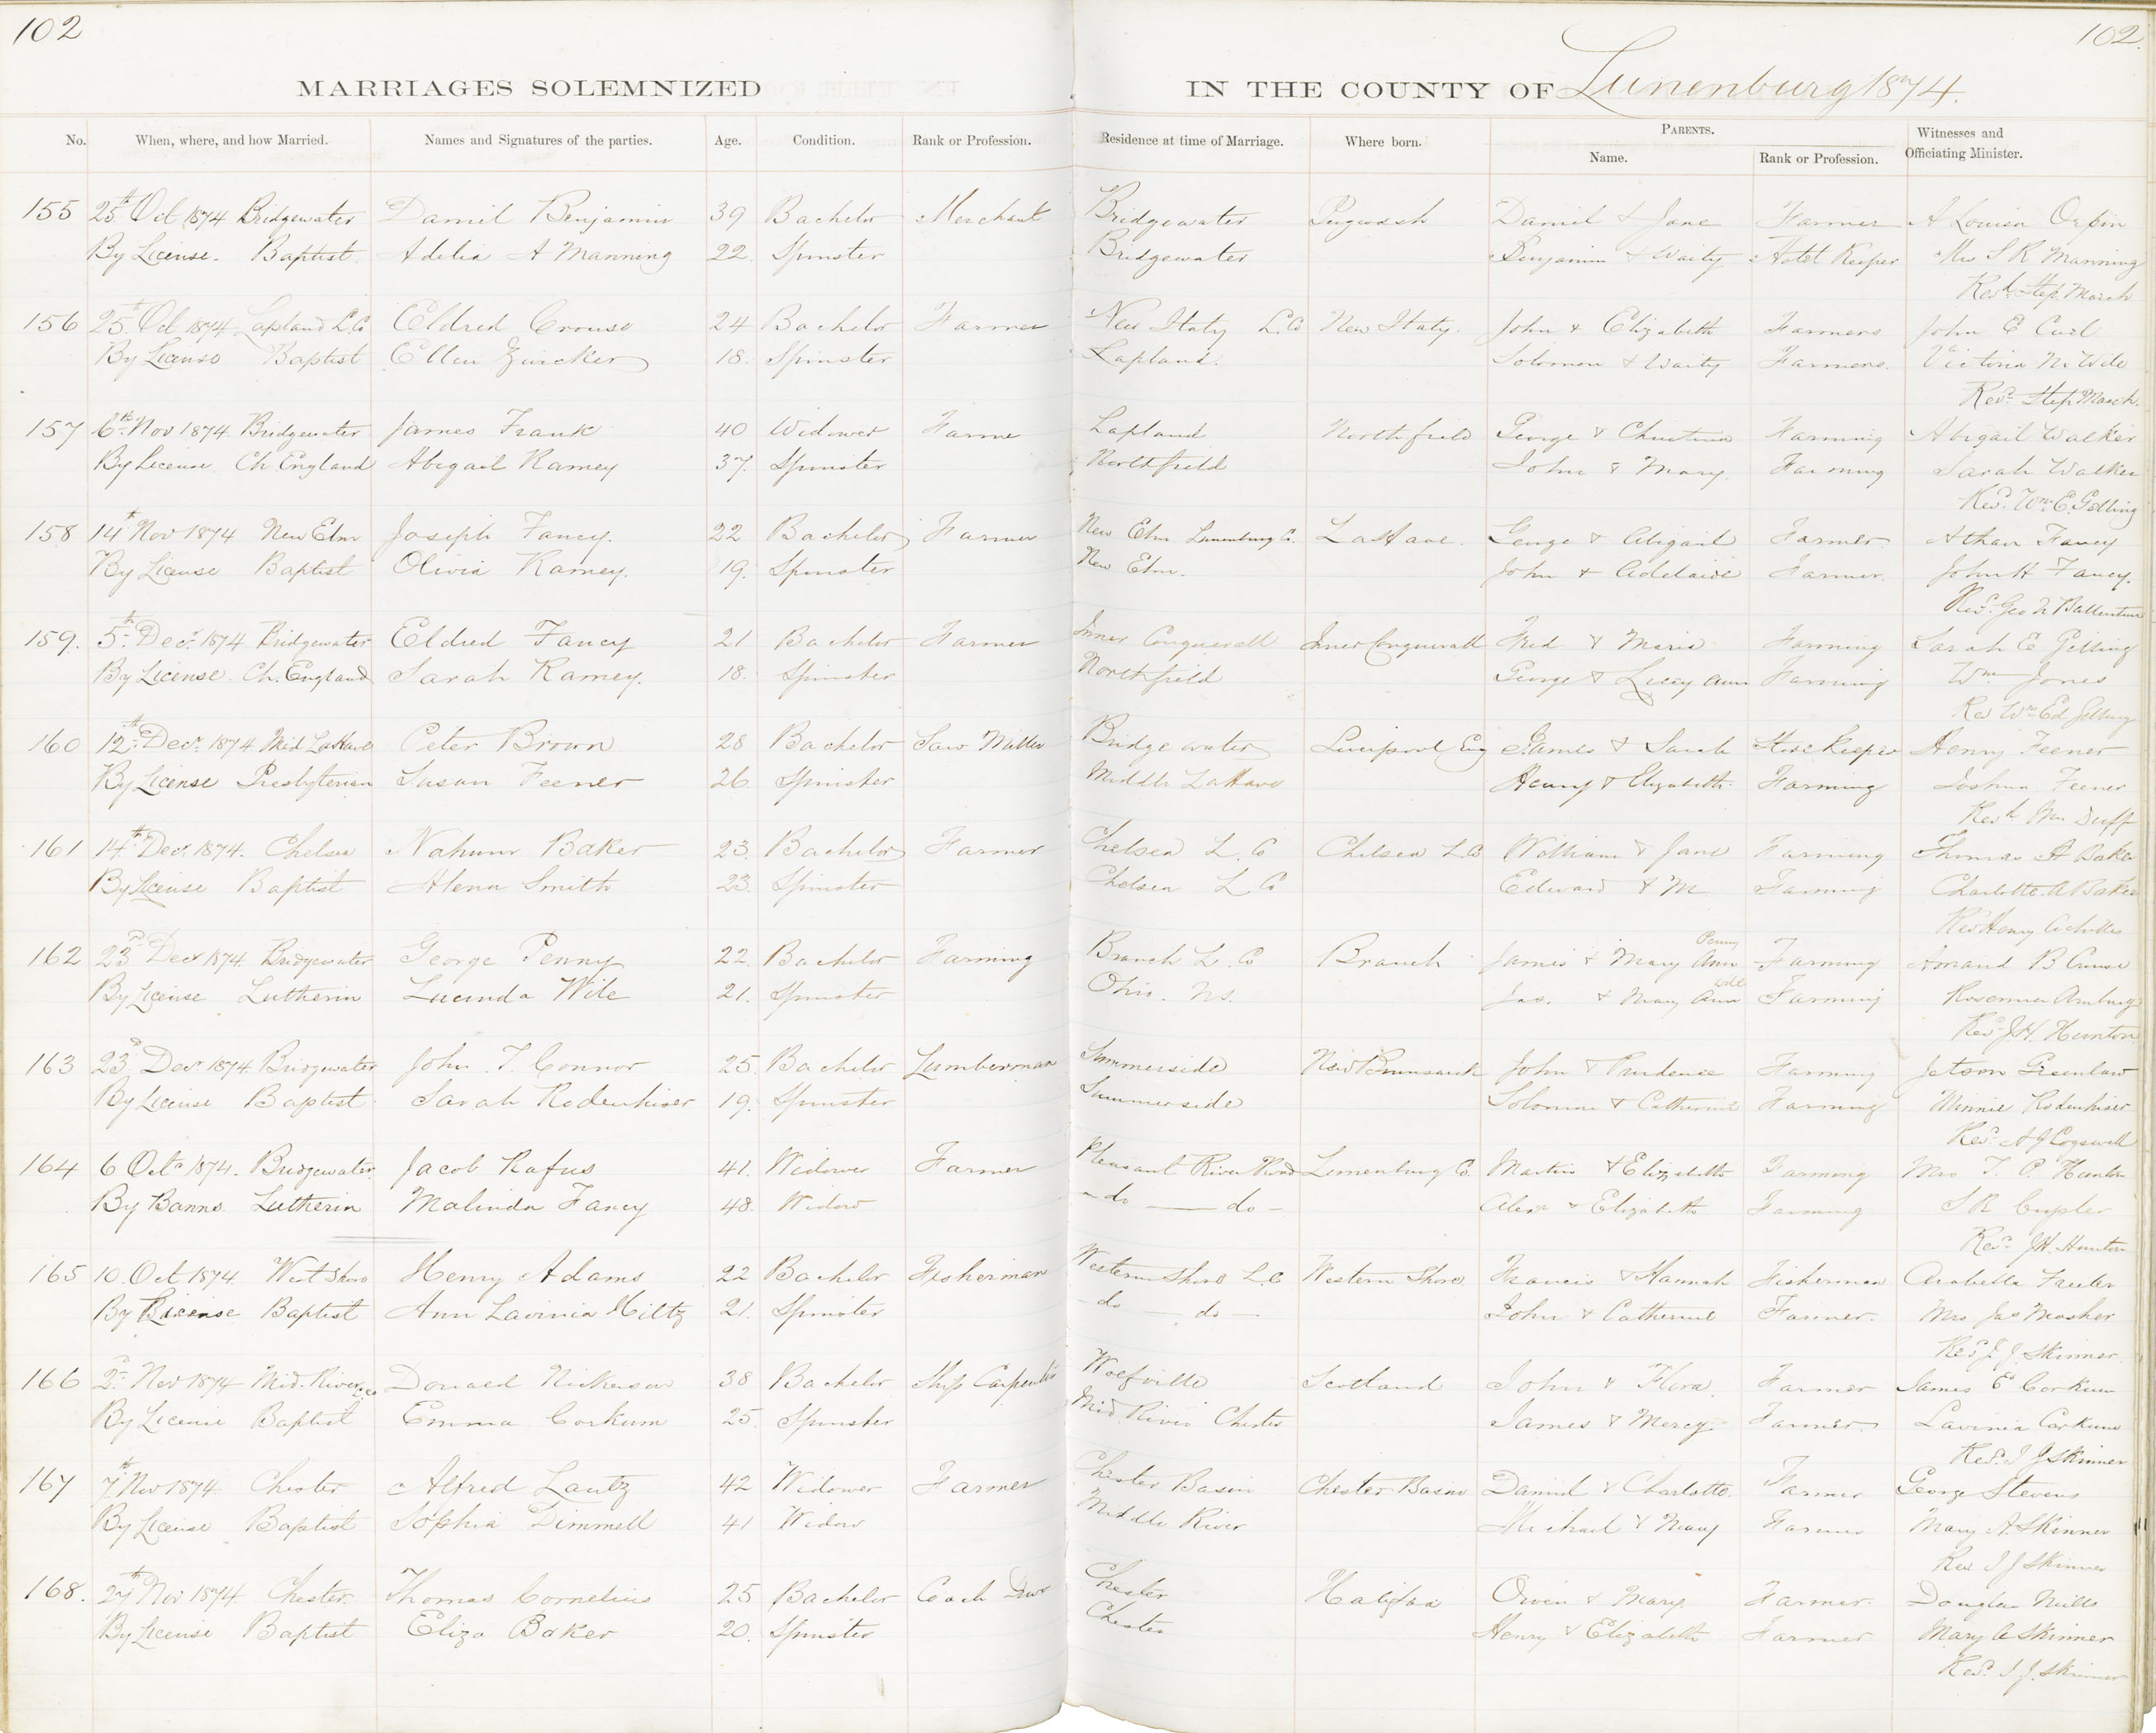 102
102.
MARRIAGES SOLEMNIZED IN THE COUNTY OF Lunenburg 1874.
No. When, where, and how Married. Names and Signatures of the parties. Age. Condition. Rank or Profession. Residence at time of Marriage. Where born. PARENTS. Name. Rank or Profession. Witnesses and Officiating Minister.
155 25th Oct 1874 Bridgewater Daniel Benjamin 39 Bachelor Merchant Bridgewater Pugwash Daniel & Jane Farmer A Louisa Orpin
By License. Baptist. Adelia A Manning 22 Spinster Bridgewater Benjamin & Waity Hotel Keeper Mrs S R Manning
Revd Step. March
156 25th Oct 1874 Lapland L.Co Eldred Crouse 24 Bachelor Farmer New Italy L.Co New Italy. John & Elizabeth Farmers John E Curl
By License Baptist Ellen Zwicker 18. Spinster Lapland. Solomon & Waity Farmers. Victoria
Revd Step March.
157 6th Nov 1874 Bridgewater James Frank 40 Widower Farmer Lapland Northfield George & Christina Farming Abigail Walker
By License Ch England Abigail Ramey 37. Spinster Northfield John & Mary Farming Sarah Walker
Revd. Wm. E. Gelling
158 14th Nov 1874 New Elm Joseph Fancy. 22 Bachelor Farmer New Elm Lunenburg C. LaHave. George & Abigail Farmer Athan Fancy
By License Baptist Olivia Ramey. 19. Spinster New Elm. John & Adelaide Farmer. John H Fancy.
Revd. Geo N Ballentine
159. 5th Decr 1874 Bridgewater Eldred Fancy 21 Bachelor Farmer Inner Conquerall Inner Conquerall Fred & Maria Farming Sarah E Gelling
By License. Ch. England Sarah Ramey. 18. Spinster Northfield George & Lucy Ann Farming Wm Jones
Rev Wm Ed Gelling
160 12th Decr 1874 Mid LaHave Peter Brown 28 Bachelor Saw Miller Bridgewater Liverpool Eng James & Sarah Store Keeper Henry Feener
By License Presbyterian Susan Feener 26. Spinster Middle LaHave Henry & Elizabeth Farming Joshua Feener
Revd Wm Duff
161 14th Decr 1874. Chelsea Nahum Baker 23. Bachelor Farmer Chelsea L. Co Chelsea L. Co William & Jane Farming Thomas A Baker
By License Baptist Alena Smith 23. Spinster Chelsea L Co Edward & M Farming Charlotte. A Baker
Revd Henry Achilles
162 23d Decr 1874. Bridgewater George Penny 22. Bachelor Farming Branch L. Co Branch James & Mary Ann Penny Farming B Crouse
By License Lutherin Lucinda Wile 21. Spinster Ohio. N.S. Jas. & Mary Ann Wile Farming
Revd J.H. Hunton
163 23d Decr 1874 Bridgewater John. T. Connor 25. Bachelor Lumberman Summerside New Brunswick John & Prudence Farming Jetson Greenlaw
By License Baptist Sarah Rodenhiser 19. Spinster Summerside Solomon & Catherine Farming Minnie Rodenhiser
Revd. A J Cogswell
164 6 Octr 1874. Bridgewater Jacob Rafus 41. Widower Farmer Pleasant River Road Lunenburg Co. Martin & Elizabeth Farming Mrs T. P. Hunton
By Banns. Lutherin Malinda Fancy 48. Widow - do — do - Alexr & Elizabeth Farming S R Cupler
Revd. JH. Hunton
165 10. Oct 1874. West Shore Henry Adams 22 Bachelor Fisherman Western Shore L.C Western Shore Francis & Hannah Fisherman Arabella
By License Baptist Ann Lavinia Hiltz 21. Spinster - do — do — John & Catherine Farmer. Mrs Jas Mosher
Revd I. J. Skinner.
166 2d Nov 1874 Mid. River L.Co Donald Nickerson 38 Bachelor Ship Carpenter Wolfville Scotland John & Flora. Farmer James E Corkum
By License Baptist Emma Corkum 25. Spinster Mid River Chester James & Mercy Farmer Lavinia Corkum
Revd. I J Skinner
167 7th Nov 1874 Chester Alfred Lantz 42 Widower Farmer Chester Basin Chester Basin Daniel & Charlotte. Farmer George Stevens
By License Baptist Sophia Dimmell 41 Widow Middle River Michael & Mary Farmer Mary A. Skinner
Rev I J Skinner
168. 27th Nov 1874 Chester Thomas Cornelius 25 Bachelor Coach Chester Halifax Owen & Mary Farmer. Douglas Mills
By License Baptist Eliza Baker 20. Spinster Chester Henry & Elizabeth Farmer Mary A Skinner
Revd. I. J. Skinner